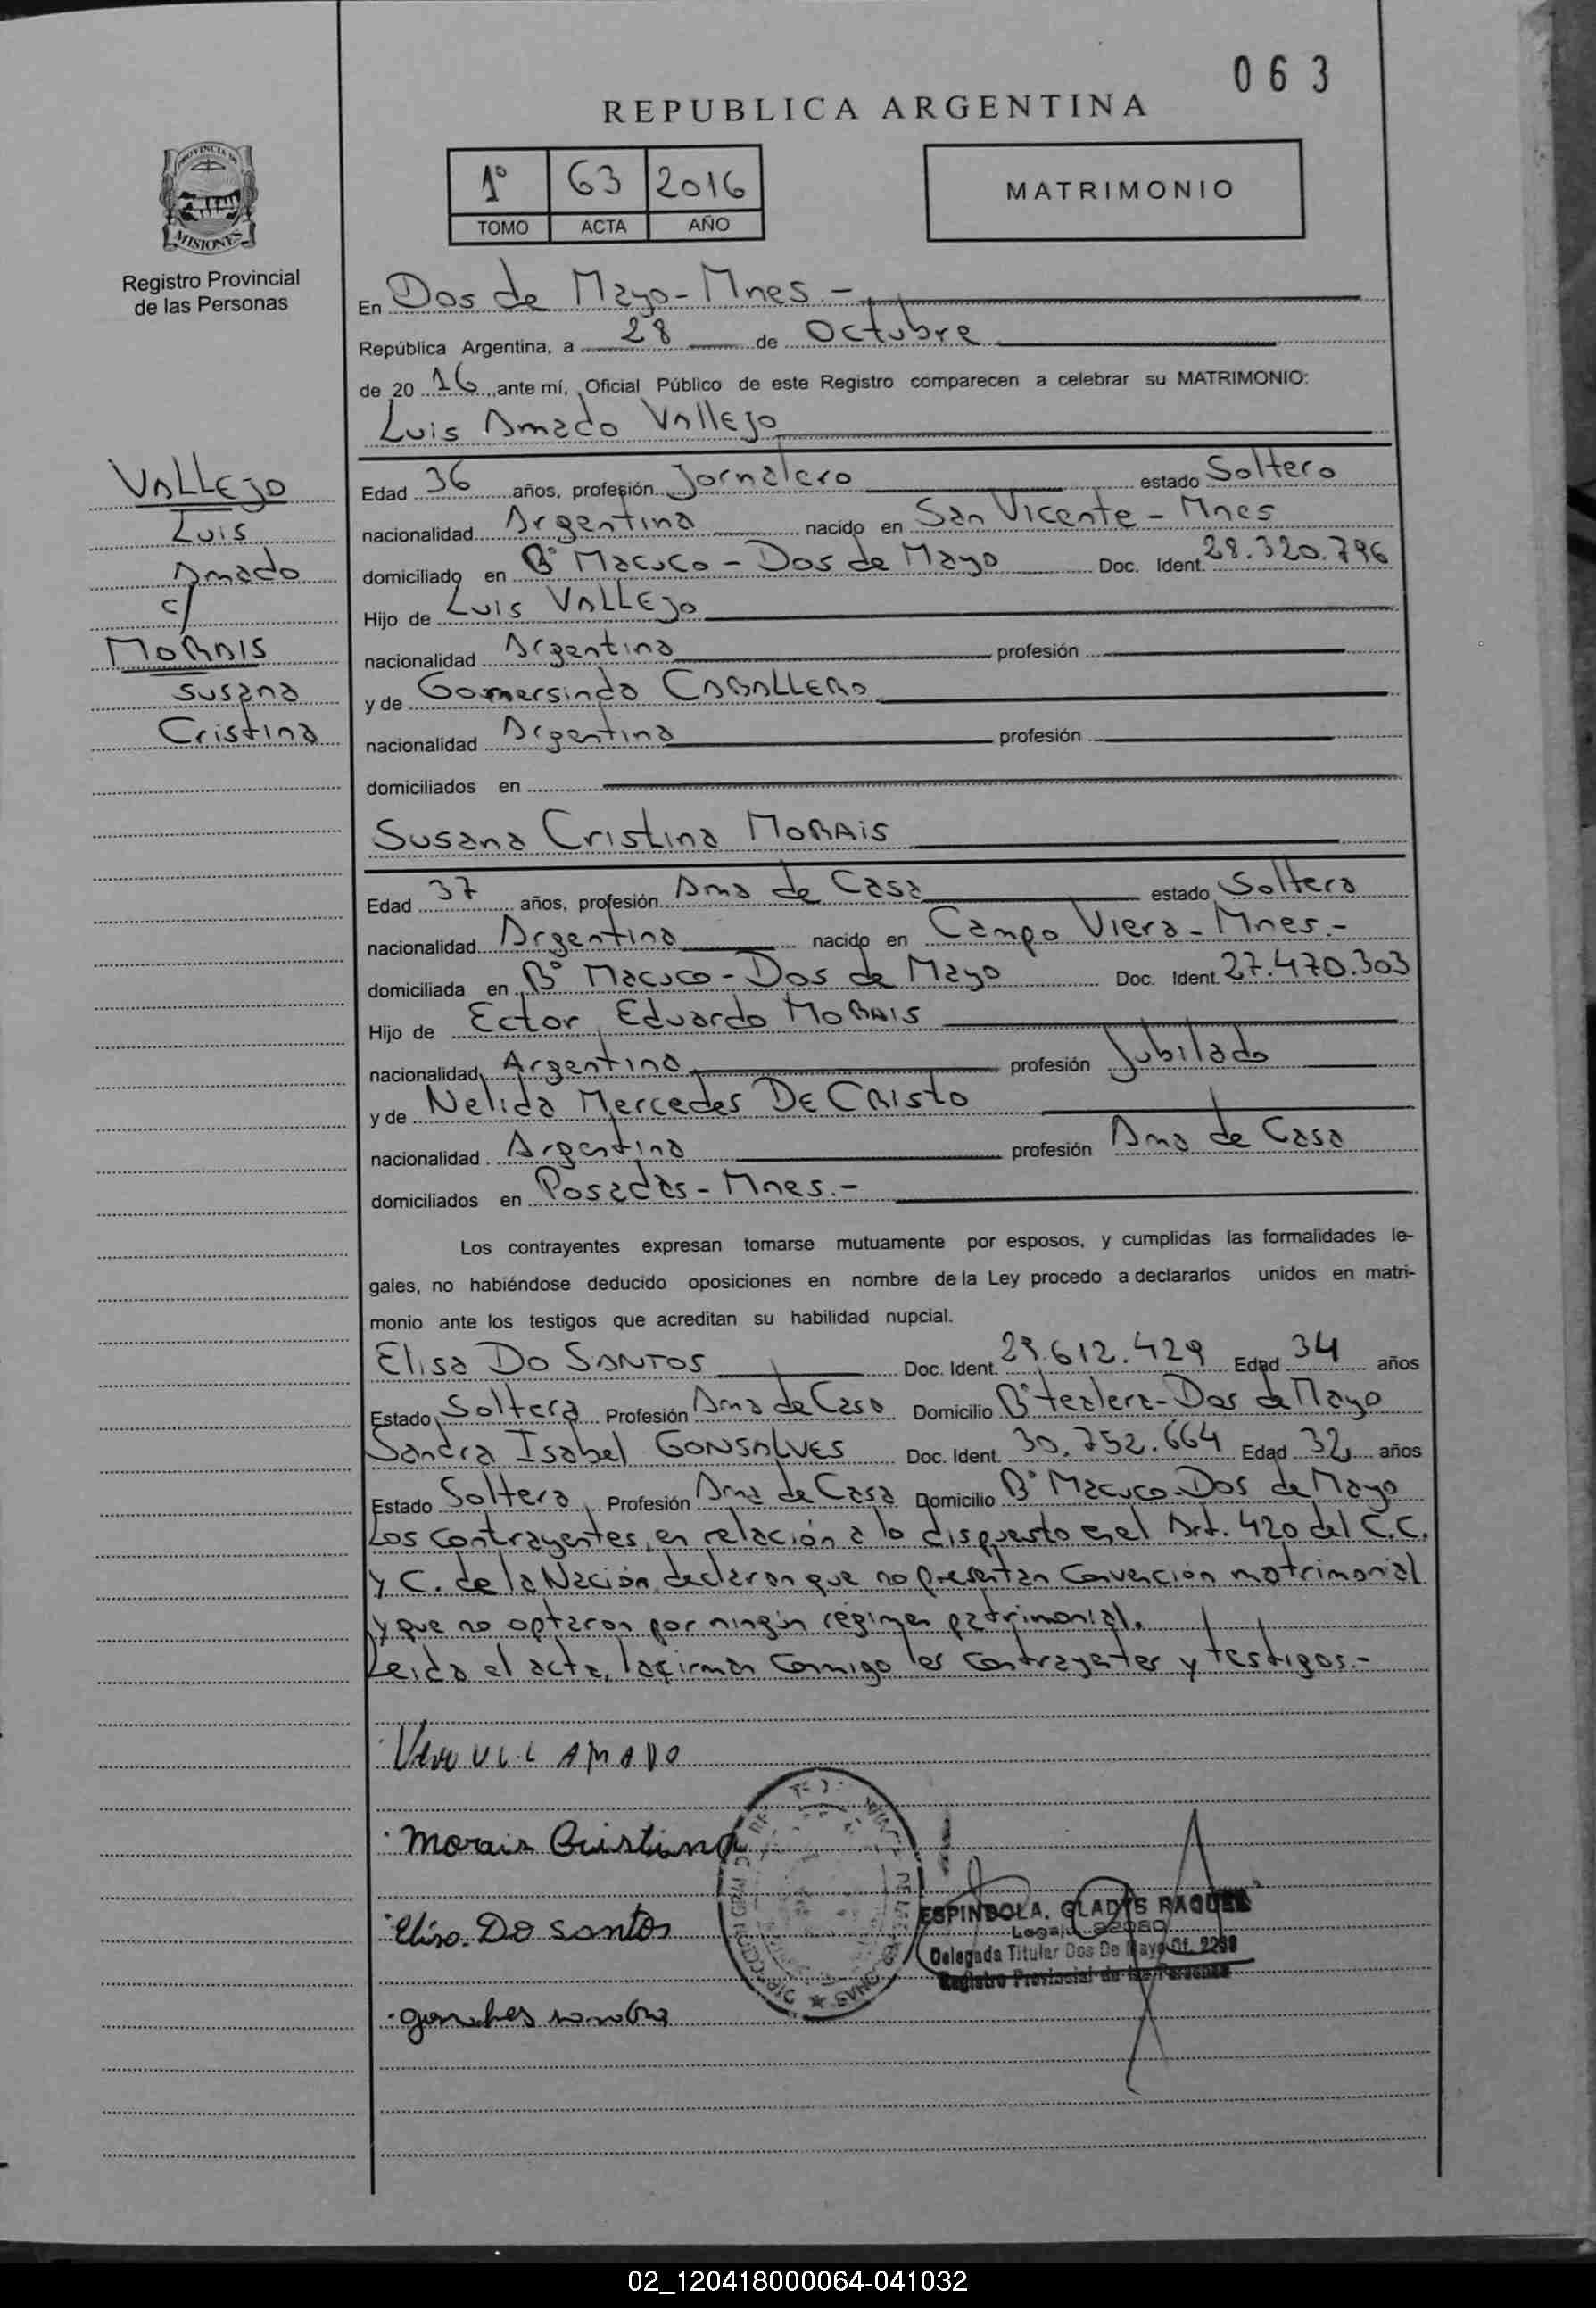 063
REPUBLICA ARGENTINA
1° 63 2016
TOMO ACTA AÑO
MATRIMONIO
PROVINCIA DE
MISIONES
Registro Provincial
de las Personas
En Dos de Mayo - Mnes -
República Argentina, a 28 de Octubre
de 20 16, ante mí, Oficial Público de este Registro comparecen a celebrar su MATRIMONIO:
Luis Amado Vallejo
VALLEJO
Luis
Amado
c/
MORAIS
Susana
Cristina
Edad 36 años, profesión Jornalero estado Soltero
nacionalidad Argentina nacido en San Vicente - Mnes
domiciliado en B° Macuco - Dos de Mayo Doc. Ident. 28.320.796
Hijo de Luis VALLEJO
nacionalidad Argentina profesión
y de Gomersinda CABALLERO
nacionalidad Argentina profesión
domiciliados en
Susana Cristina MORAIS
Edad 37 años, profesión Ama de Casa estado Soltera
nacionalidad Argentina nacido en Campo Viera - Mnes.-
domiciliada en B° Macuco - Dos de Mayo Doc. Ident. 27.470.303
Hijo de Ector Eduardo MORAIS
nacionalidad Argentina profesión Jubilado
y de Nelida Mercedes DE CRISTO
nacionalidad Argentina profesión Ama de Casa
domiciliados en Posadas - Mnes.-
Los contrayentes expresan tomarse mutuamente por esposos, y cumplidas las formalidades le-
gales, no habiéndose deducido oposiciones en nombre de la Ley procedo a declararlos unidos en matri-
monio ante los testigos que acreditan su habilidad nupcial.
Elisa DO SANTOS Doc. Ident. 29.612.429 Edad 34 años
Estado Soltera Profesión Ama de Casa Domicilio B° tealera - Dos de Mayo
Sandra Isabel GONSALVES Doc. Ident. 30.752.664 Edad 32 años
Estado Soltera Profesión Ama de Casa Domicilio B° Macuco - Dos de Mayo
Los contrayentes, en relación a lo dispuesto en el Art. 420 del C.C.
y C. de la Nación, declaran que no presentan convención matrimonial
y que no optaron por ningún régimen patrimonial.
Leida el acta, la firman conmigo los contrayentes y testigos.-
AMADO
Morais Cristina
Elisa. DO santos
ESPINDOLA, GLADYS RAQUEL
Delegada Titular Dos De Mayo Of. 2298
Registro Provincial de las Personas
02_120418000064-041032